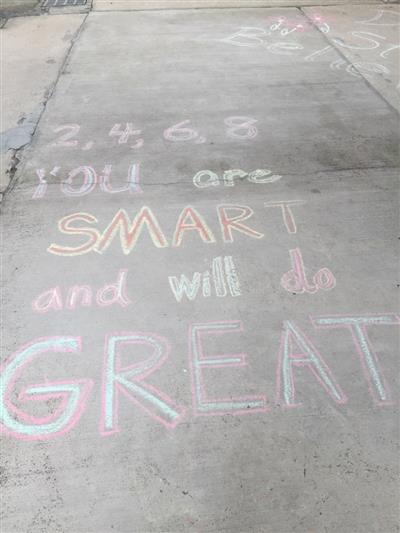 2, 4, 6, 8
YOU are
SMART
and will do
GREAT